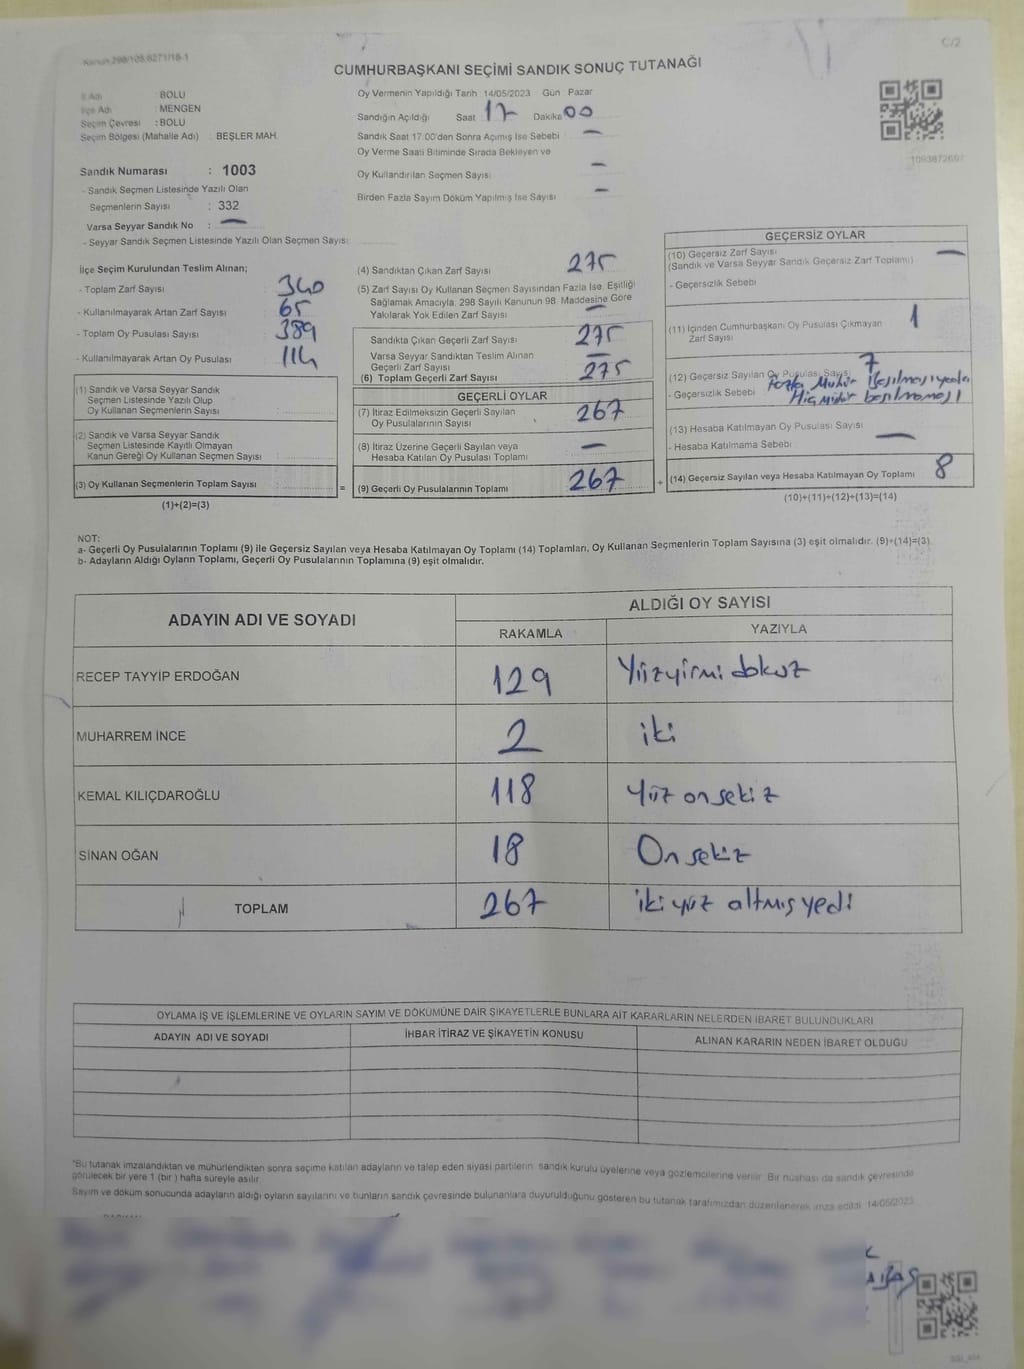 Kanun 298/105,6271/18-1
C/2
CUMHURBAŞKANI SEÇİMİ SANDIK SONUÇ TUTANAĞI
İl Adı : BOLU
İlçe Adı : MENGEN
Seçim Çevresi : BOLU
Seçim Bölgesi (Mahalle Adı) : BEŞLER MAH.
Oy Vermenin Yapıldığı Tarih 14/05/2023 Gün Pazar
Sandığın Açıldığı Saat 17 Dakika 00
Sandık Saat 17.00'den Sonra Açımış İse Sebebi —
Oy Verme Saati Bitiminde Sırada Bekleyen ve
Oy Kullandırılan Seçmen Sayısı —
Birden Fazla Sayım Döküm Yapılmış İse Sayısı —
1093872697
Sandık Numarası : 1003
- Sandık Seçmen Listesinde Yazılı Olan
Seçmenlerin Sayısı : 332
Varsa Seyyar Sandık No : —
- Seyyar Sandık Seçmen Listesinde Yazılı Olan Seçmen Sayısı:
İlçe Seçim Kurulundan Teslim Alınan;
- Toplam Zarf Sayısı 340
- Kullanılmayarak Artan Zarf Sayısı 65
- Toplam Oy Pusulası Sayısı 389
- Kullanılmayarak Artan Oy Pusulası 114
(1) Sandık ve Varsa Seyyar Sandık
Seçmen Listesinde Yazılı Olup
Oy Kullanan Seçmenlerin Sayısı :
(2) Sandık ve Varsa Seyyar Sandık
Seçmen Listesinde Kayıtlı Olmayan
Kanun Gereği Oy Kullanan Seçmen Sayısı :
(3) Oy Kullanan Seçmenlerin Toplam Sayısı
(1)+(2)=(3)
=
(4) Sandıktan Çıkan Zarf Sayısı 275
(5) Zarf Sayısı Oy Kullanan Seçmen Sayısından Fazla İse, Eşitliği
Sağlamak Amacıyla, 298 Sayılı Kanunun 98. Maddesine Göre
Yakılarak Yok Edilen Zarf Sayısı —
Sandıkta Çıkan Geçerli Zarf Sayısı 275
Varsa Seyyar Sandıktan Teslim Alınan
Geçerli Zarf Sayısı —
(6) Toplam Geçerli Zarf Sayısı 275
GEÇERLİ OYLAR
(7) İtiraz Edilmeksizin Geçerli Sayılan
Oy Pusulalarının Sayısı 267
(8) İtiraz Üzerine Geçerli Sayılan veya
Hesaba Katılan Oy Pusulası Toplamı —
(9) Geçerli Oy Pusulalarının Toplamı 267
+
GEÇERSİZ OYLAR
(10) Geçersiz Zarf Sayısı —
(Sandık ve Varsa Seyyar Sandık Geçersiz Zarf Toplamı)
- Geçersizlik Sebebi
(11) İçinden Cumhurbaşkanı Oy Pusulası Çıkmayan 1
Zarf Sayısı
(12) Geçersiz Sayılan Oy Pusulası Sayısı 7
- Geçersizlik Sebebi Fazla Mühür
Hiç mühür basılmaması
(13) Hesaba Katılmayan Oy Pusulası Sayısı —
- Hesaba Katılmama Sebebi
(14) Geçersiz Sayılan veya Hesaba Katılmayan Oy Toplamı 8
(10)+(11)+(12)+(13)=(14)
NOT:
a- Geçerli Oy Pusulalarının Toplamı (9) ile Geçersiz Sayılan veya Hesaba Katılmayan Oy Toplamı (14) Toplamları, Oy Kullanan Seçmenlerin Toplam Sayısına (3) eşit olmalıdır. (9)+(14)=(3)
b- Adayların Aldığı Oyların Toplamı, Geçerli Oy Pusulalarının Toplamına (9) eşit olmalıdır.
ADAYIN ADI VE SOYADI
ALDIĞI OY SAYISI
RAKAMLA YAZIYLA
RECEP TAYYİP ERDOĞAN 129 Yüzyirmi dokuz
MUHARREM İNCE 2 iki
KEMAL KILIÇDAROĞLU 118 Yüz onsekiz
SİNAN OĞAN 18 Onsekiz
TOPLAM 267 ikiyüz altmışyedi
OYLAMA İŞ VE İŞLEMLERİNE VE OYLARIN SAYIM VE DÖKÜMÜNE DAİR ŞİKAYETLERLE BUNLARA AİT KARARLARIN NELERDEN İBARET BULUNDUKLARI
ADAYIN ADI VE SOYADI İHBAR İTİRAZ VE ŞİKAYETİN KONUSU ALINAN KARARIN NEDEN İBARET OLDUĞU
*Bu tutanak imzalandıktan ve mühürlendikten sonra seçime katılan adayların ve talep eden siyasi partilerin sandık kurulu üyelerine veya gözlemcilerine verilir. Bir nüshası da sandık çevresinde
görülecek bir yere 1 (bir ) hafta süreyle asılır.
Sayım ve döküm sonucunda adayların aldığı oyların sayılarını ve bunların sandık çevresinde bulunanlara duyurulduğunu gösteren bu tutanak tarafımızdan düzenlenerek imza edildi. 14/05/2023